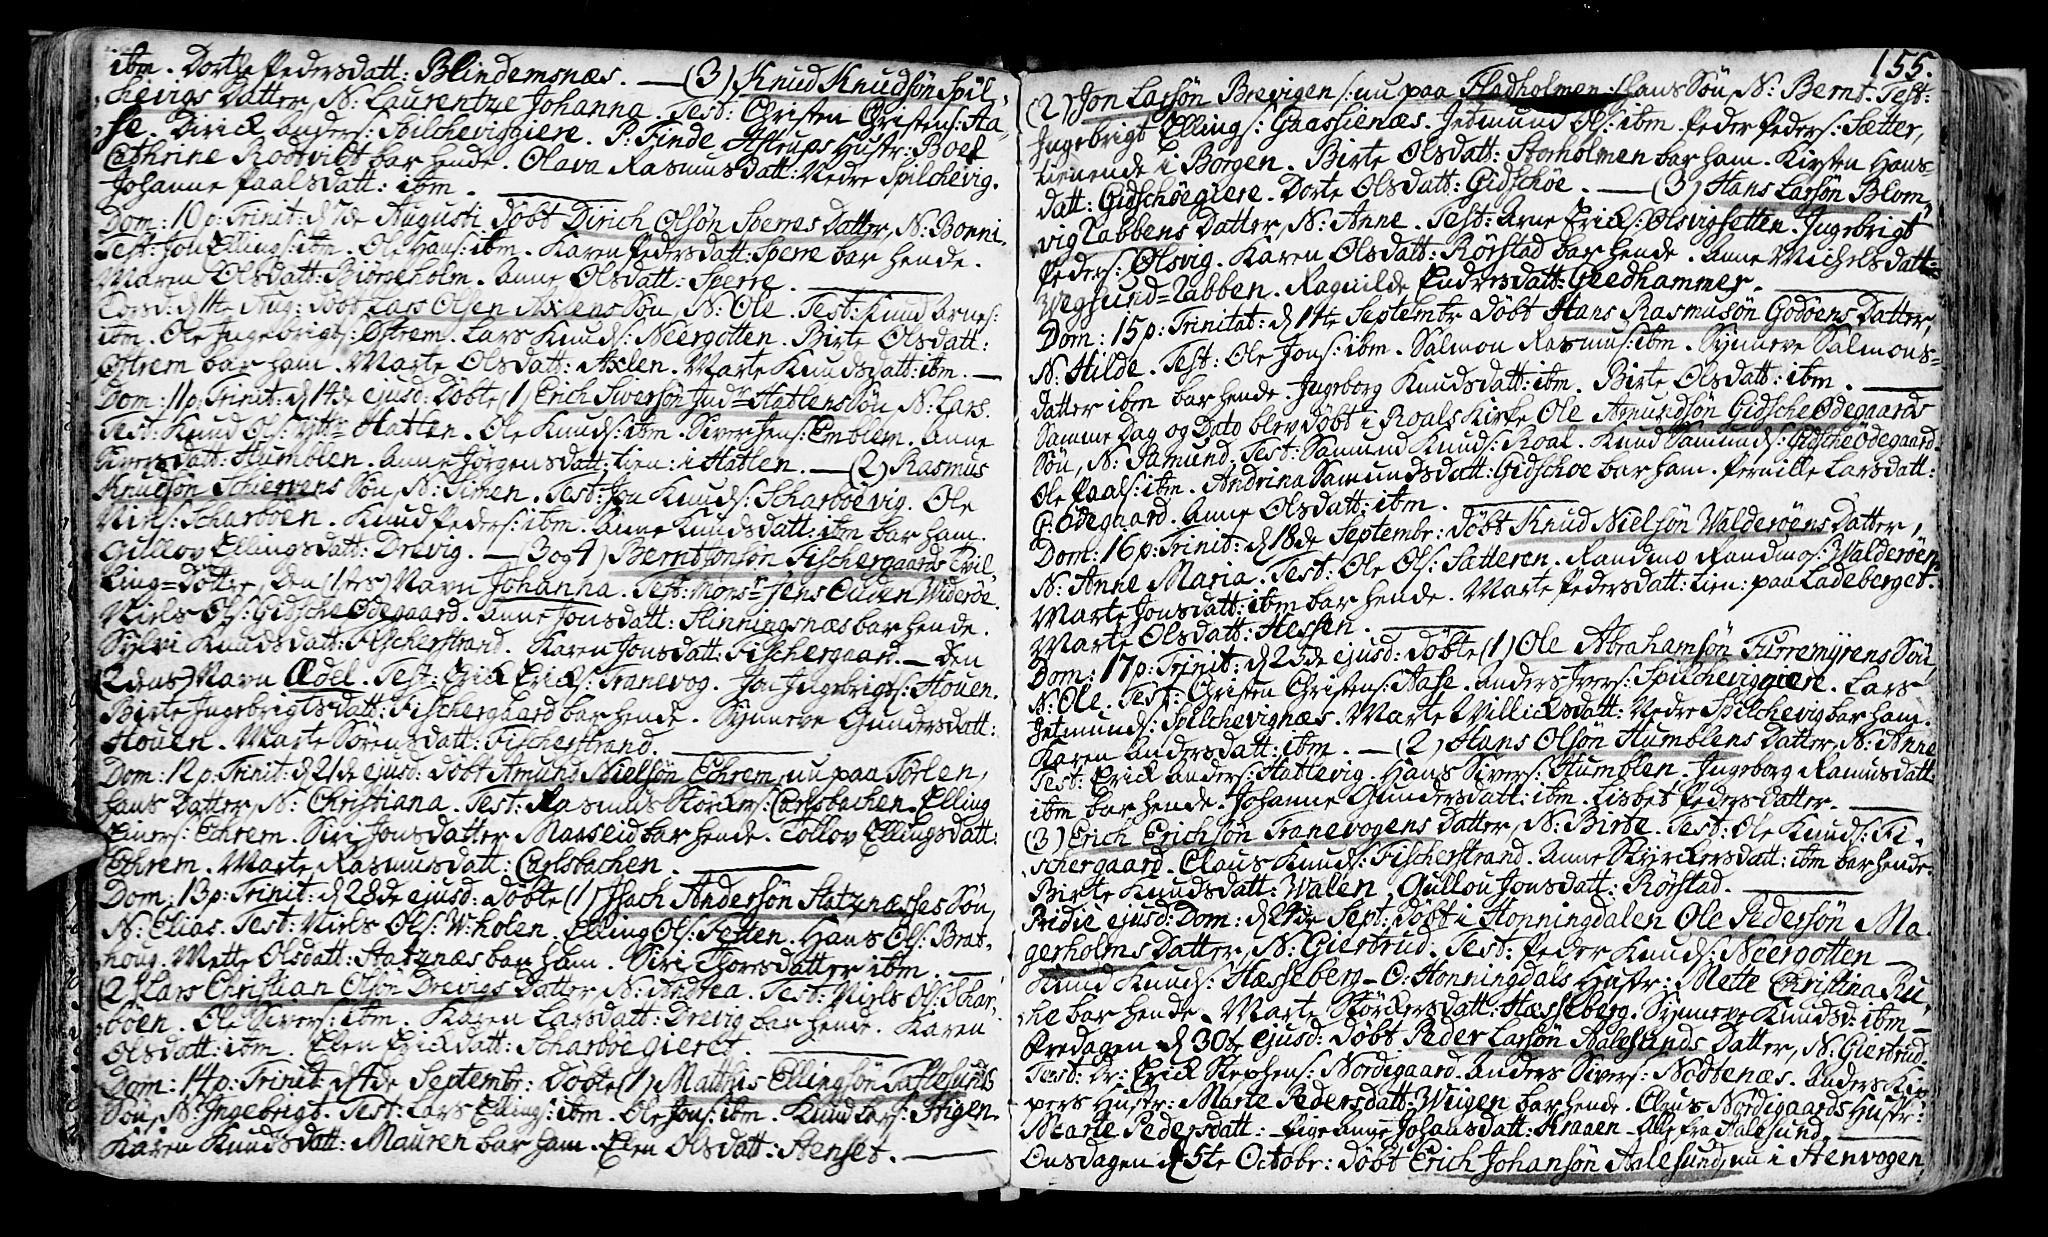 ibm. Dorthe Pedersdatt: Blindemsnæs. — (3) Knud Knudsön Spil-
chevigs Datter, N: Laurentze Johanna. Test: Christen Christens: Aa-
se. Dirick Anders: Spilcheviggiere. P: Finde Astrups Hustr: Boel
Cathrine Rodtvidt bar hende. Olava Rasmusdatt: Nedre Spilchevig.
Johanne Paalsdatt: ibm.
Dom: 10 p: Trinit: d 7de Augusti döbt Dirich Olsön Sperres Datter, N: Bonni.
Test: Jon Ellings: ibm. Ole Hans: ibm. Karen Pedersdatt: Sperre bar hende.
Maren Olsdatt: Biörgeholm. Anne Olsdatt: Sperre.
Torsd: d 11te Aug: döbt Lars Olsen Axlens Sön, N: Ole. Test: Knud Arnes:
ibm. Ole Ingebrigts: Östrem. Lars Knuds: Neergotten. Birte Olsdatt:
Östrem bar ham. Marte Olsdatt: Axlen. Marte Knudsdatt: ibm. —
Dom: 11 p: Trinit: d 14de ejusd: Döbte (1) Erich Siversön Indr Hatlens Sön, N: Lars.
Test: Knud Ols: Yttr Hatlen. Ole Knuds: ibm. Siver Jens: Emblem. Anne
Siversdatt: Humblen. Anne Jörgensdatt: tien: i Hatlen. — (2) Rasmus
Knudsön Schiervens Sön, N: Simen. Test: Jon Knuds: Scharboevig. Ole
Nins: Scharboen. Knud Peders: ibm. Anne Knudsdatt: ibm bar ham.
Gullov Ellingsdatt: Drevig. — (3 og 4) Bernt Jonsön Fischergaards Tvil-
ling=döttre, den (1stes) Navn Johanna. Test: Monsr Jens Ouden Wideröe.
Niels Ols: Gidsche Ödegaard. Anne Jonsdatt: Slinningsnæs bar hende.
Sylvi Knudsdatt: Fischerstrand. Karen Jonsdatt: Fischergaard. — Den
(2dens) Navn Ædel. Test: Erick Ericks: Tranevog. Jon Ingebrigts: Houen.
Birte Ingebrigtsdatt: Fischergaard bar hende. Synneve Gundersdatt:
Houen. Marte Sörensdatt: Fischerstrand.
Dom: 12 p: Trinit: d 21de ejusd: döbt Amund Nielsön Echrem, nu paa Sörlen,
hans Datter, N: Christiana. Test: Rasmus Störckers: Carlsbachen. Elling
Einers: Echrem. Siri Jonsdatter Marseid bar hende. Tollov Ellingsdatt:
Echrem. Marte Rasmusdatt: Carlsbachen.
Dom: 13 p: Trinit: d 28de ejusd: döbte (1) Isach Andersön Statznæsses Sön,
N: Elias. Test: Niels Ols: W:holen. Elling Ols: Fetten. Hans Ols: Brat-
houg. Mette Olsdatt: Statznæs bar ham. Siri Thorsdatter ibm. —
(2) Lars Christian Olsön Drevigs Datter, N: Andrea. Test: Niels Ols: Schar-
böen. Ole Sivers: ibm. Karen Larsdatt: Drevig bar hende. Karen
Olsdatt: ibm. Elen Erickdatt: Scharboegieret.
Dom: 14 p: Trinit: d 4de Septembr: Döbte (1) Matthis Ellingsön Aalesunds
Sön, N: Ingebrigt. Test: Lars Ellings: ibm. Ole Jons: ibm. Knud Lars: Stigen.
Karen Knudsdatt: Mauren bar ham. Elen Olsdatt: Henset. —
155.
(2) Jon Larsön Brevigen /: nu paa Fladholmen :/ hans Sön, N: Bernt. Test:
Ingebrigt Ellings: Gaassienæs. Jedmund Ols: ibm. Peder Peders: Sætter,
tienende i Borgen. Birte Olsdatt: Storholmen bar ham. Kirsten Hans-
datt: Gidschöegiere. Dorte Olsdatt: Gidschöe. — (3) Hans Larsön Blom-
vig Labbens Datter, N: Anne. Test: Arne Erick: Olsvigsetten. Ingebrigt
Peders: Olsvig. Karen Olsdatt: Rörstad bar hende. Anne Michelsdatt:
Wegsund=Labben. Ragnilde Endersdatt: Geedhammer.
Dom: 15 p: Trinitat: d 11te Septembr döbt Hans Rasmusön Godöens Datter,
N: Hilde. Test: Ole Jons: ibm. Salmon Rasmus: ibm. Synneve Salmons-
datter ibm bar hende. Ingeborg Knudsdatt: ibm. Birte Olsdatt: ibm.
Samme Dag og Dato blev döbt i Roals Kirke Ole Amundsön Gidsche Ödegaards
Sön, N: Jamund. Test: Samund Knuds: Roal. Knud Samunds: Gidsche Ödegaard.
Ole Paals: ibm. Andrina Samundsdatt: Gidschoe bar ham. Pernille Larsdatt:
G: Ödegaard. Anne Olsdatt: ibm.
Dom: 16 p: Trinit: d 18de Septembr: döbt Knud Nielsön Walderöens Datter,
N: Anne Maria. Test: Ole Ols: Satteren. Randmo Randmos: Walderöen.
Marte Jonsdatt: ibm bar hende. Marte Pedersdatt: tien: paa Ladeberget.
Marte Olsdatt: Hessen.
Dom: 17 p: Trinit: d 25de ejusd: döbte (1) Ole Abrahamsön Furremyrens Sön,
N: Ole. Test: Christen Christens: Aase. Anders Ivers: Spilcheviggiere. Lars
Jetmunds: Spilchevignæs. Marte Willicksdatt: Nedre Spilchevig bar ham.
Karen Andersdatt: ibm. — (2) Hans Olsön Humblens Datter, N: Anne
Test: Erick Anders: Hatlevig. Hans Sivers: Humblen. Ingeborg Ramusdatt:
ibm bar hende. Johanne Gundersdatt: ibm. Lisbet Pedersdatter. —
(3) Erich Erichsön Tranevogens Datter, N: Birte. Test: Ole Knuds: Fi-
schergaard. Claus Knuds: Fischerstrand. Anne Styrckersdatt: ibm bar hende.
Birte Knudsdatt: Walen. Gullou Jonsdatt: Rörstad.
Pridie ejusd: Dom: d 24de Sept: döbt i Honningdalen Ole Pedersön Ma-
gerholms Datter, N: Giertrud. Test: Peder Knuds: Neergotten —
Knud Knuds: Hæsseberg — O: Honningdals Hustr: Mette Christina Ru-
he bar hende. Marte Störckersdatt: Hæsseberg. Synneve Knudsd: ibm —
Fredagen d 30te ejusd: döbt Peder Larsön Aalesunds Datter, N: Giertrud.
Test: Sr: Erick Stephens: Nordigaard. Anders Sivers: Nodtenæs. Anders Kip-
pers Hustr: Marte Pedersdatt: Weigen bar hende. Claus Nordigaards Hustr:
Marte Pedersdatt: Pige Anne Johansdatt: Kraaen — Alle fra Aalesund.
Onsdagen d 5te Octobr: döbt Erich Johansön Aalesund, nu i Stenvogen